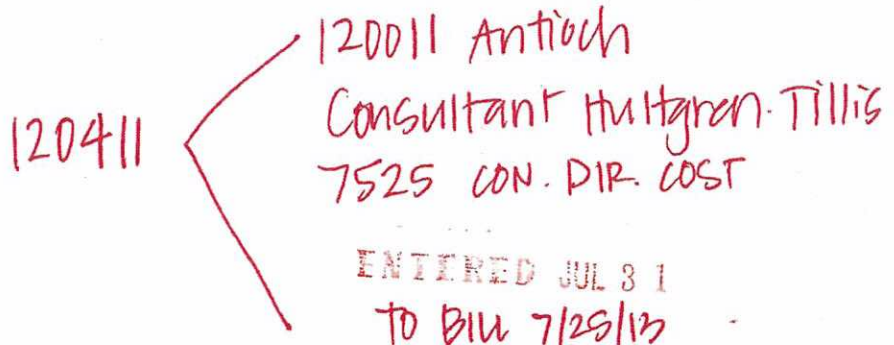 120411
120011 Antioch
Consultant Hultgren. Tillis
7525 CON. DIR. COST
ENTERED JUL 31
TO BILL 7/25/13